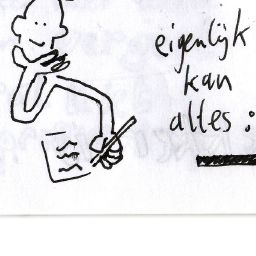 eigenlijk
kan
alles: